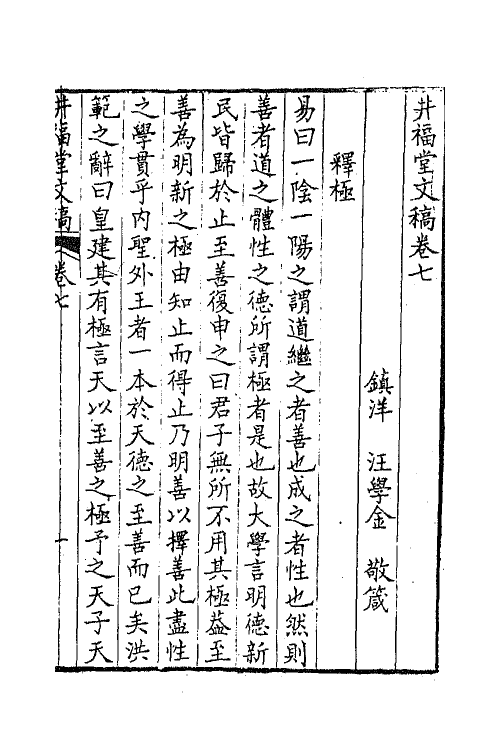 井福堂文稿卷七
鎮洋 汪學金 敬箴
釋極
易曰一陰一陽之謂道繼之者善也成之者性也然則
善者道之體性之德所謂極者是也故大學言明德新
民皆歸於止至善復申之曰君子無所不用其極葢至
善為明新之極由知止而得止乃明善以擇善此盡性
之學貫乎內聖外王者一本於天德之至善而已矣洪
範之辭曰皇建其有極言天以至善之極予之天子天
井福堂文稿 卷七 一